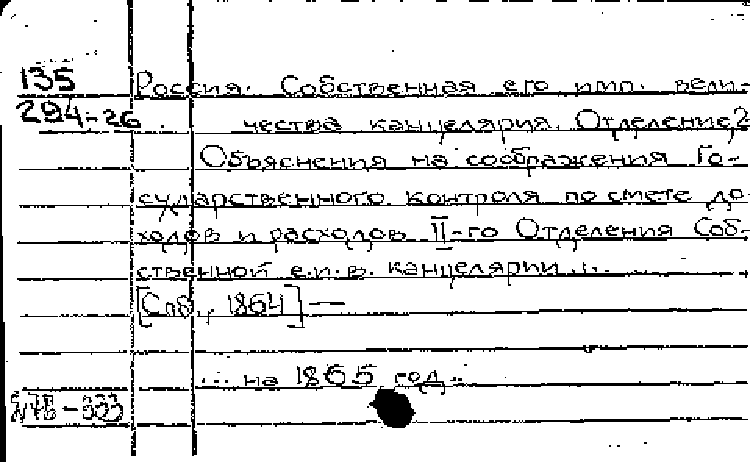 135 Россия. Собственная его имп. вели-
294-26 чества канцелярия. Отделение 2
Объяснения на соображения Го-
сударственного контроля по смете до-
ходов и расходов II-го Отделения Соб-
ственной е.и.в. канцелярии...
[Спб., 1864] —
... на 1865 год.